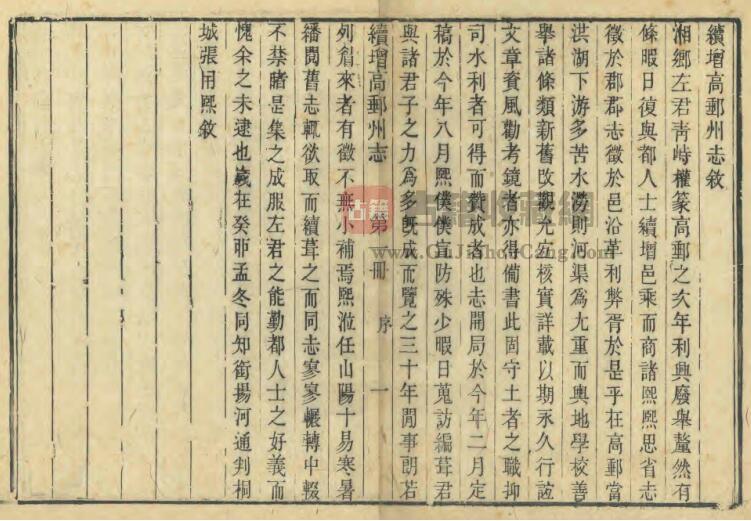 續增高郵州志敘
湘鄉左君靑峙權篆高郵之次年利興廢舉釐然有
條暇日復與都人士續增邑乘而商諸熙熙思省志
徵於郡郡志徵於邑沿革利弊胥於是乎在高郵當
洪湖下游多苦水澇則河渠爲尤重而輿地學校善
舉諸條類新舊改觀尤宜核實詳載以期永久行誼
文章資風勸考鏡者亦得備書此固守土者之職抑
司水利者可得而贊成者也志開局於今年二月定
稿於今年八月熙僕僕宣防殊少暇日蒐訪編葺君
與諸君子之力爲多旣成而覽之三十年閒事朗若
續增高郵州志 第一冊 序 一
列眉來者有徵不無小補焉熙涖任山陽十易寒暑
繙閱舊志輒欲取而續葺之而同志寥寥輾轉中輟
不禁睹是集之成服左君之能勤都人士之好義而
愧余之未逮也歲在癸卯孟冬同知銜揚河通判桐
城張用熙敘
古籍書收藏網
www.GuJiShouCang.com